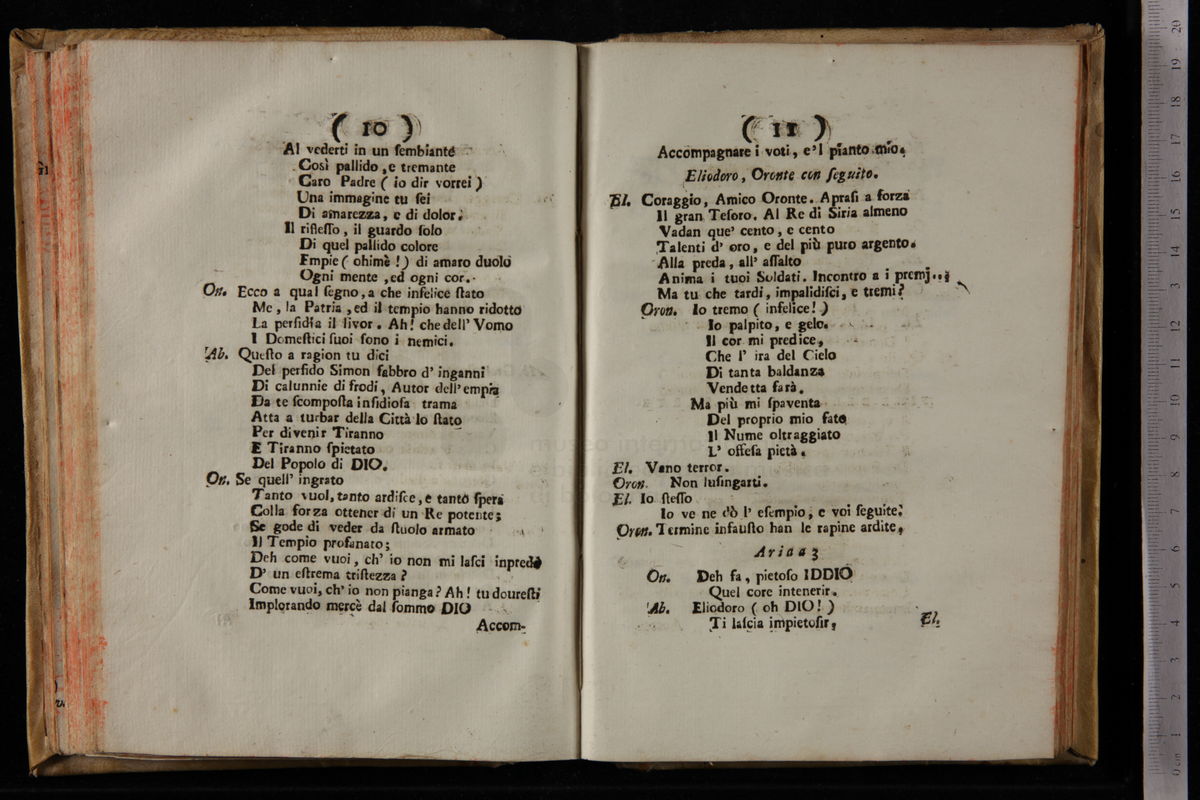 ( 10 )
Al vederti in un ſembiante
Così pallido, e tremante
Caro Padre ( io dir vorrei )
Una immagine tu ſei
Di amarezza, e di dolor.
Il rifleſſo, il guardo ſolo
Di quel pallido colore
Empie ( ohimè ! ) di amaro duolo
Ogni mente, ed ogni cor.
On. Ecco a qual ſegno, a che infelice ſtato
Me, la Patria, ed il tempio hanno ridotto
La perfidia il livor. Ah! che dell' Vomo
I Domeſtici ſuoi ſono i nemici.
Ab. Queſto a ragion tu dici
Del perfido Simon fabbro d' inganni
Di calunnie di frodi, Autor dell' empia
Da te ſcompoſta inſidioſa trama
Atta a turbar della Città lo ſtato
Per divenir Tiranno
E Tiranno ſpietato
Del Popolo di DIO.
On. Se quell' ingrato
Tanto vuol, tanto ardiſce, e tanto ſpera
Colla forza ottener di un Re potente;
Se gode di veder da ſtuolo armato
Il Tempio profanato;
Deh come vuoi, ch' io non mi laſci inpreda
D' un eſtrema triſtezza ?
Come vuoi, ch' io non pianga? Ah! tu doureſti
Implorando mercè dal ſommo DIO
Accom-
( 11 )
Accompagnare i voti, e'l pianto mio.
Eliodoro, Oronte con ſeguito.
El. Coraggio, Amico Oronte. Apraſi a forza
Il gran Teſoro. Al Re di Siria almeno
Vadan que' cento, e cento
Talenti d' oro, e del più puro argento.
Alla preda, all' aſſalto
Anima i tuoi Soldati. Incontro a i premj...
Ma tu che tardi, impalidiſci, e tremi?
Oron. Io tremo ( infelice! )
Io palpito, e gelo.
Il cor mi predice,
Che l' ira del Cielo
Di tanta baldanza
Vendetta farà.
Ma più mi ſpaventa
Del proprio mio fato
Il Nume oltraggiato
L' offeſa pietà.
El. Vano terror.
Oron. Non luſingarti.
El. Io ſteſſo
Io ve ne dò l' eſempio, e voi ſeguite.
Oron. Termine infauſto han le rapine ardite,
Aria a 3
On. Deh fa, pietoſo IDDIO
Quel core intenerir.
Ab. Eliodoro ( oh DIO! )
Ti laſcia impietoſir,
El.